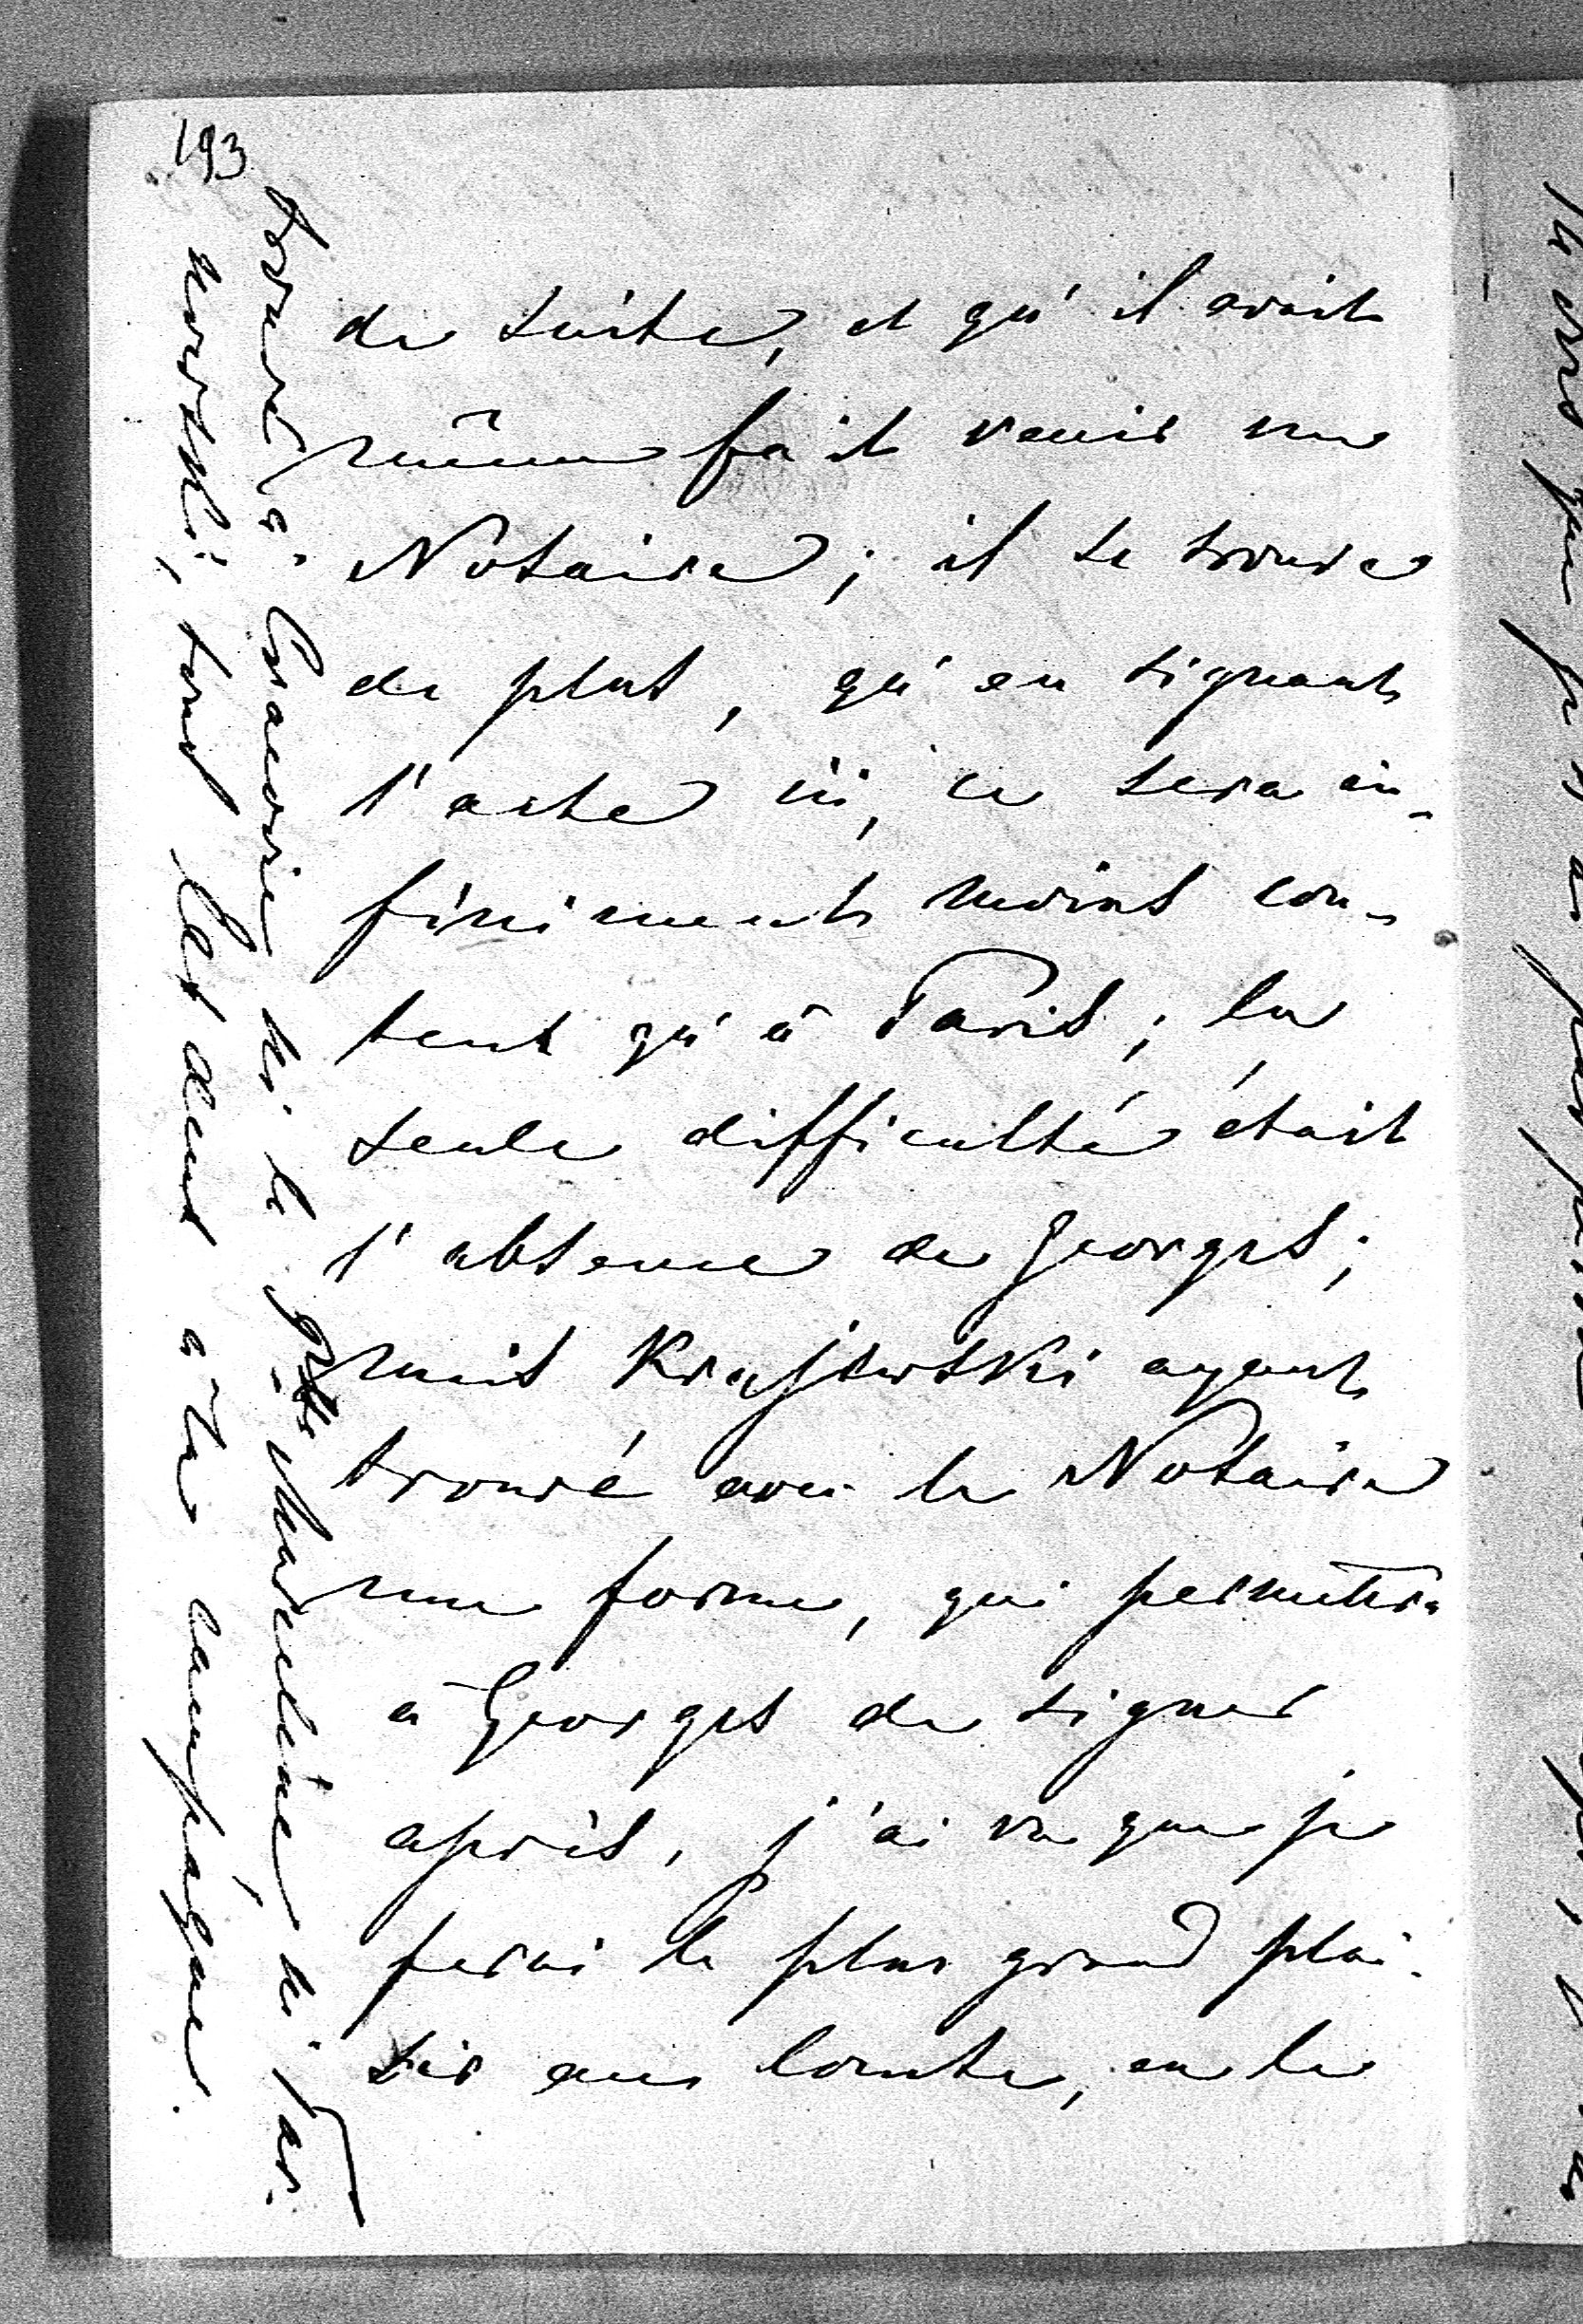 193
de suite, et qu'il avait
même fait venir un
Notaire; il se trouve
de plus, qu'en signant
l'acte ici, ce sera in-
finiment moins cou-
teux qu'à Paris; la
seule difficulté était
l'absence de Georges;
mais Krajewski ayant
trouvé avec le Notaire
une forme, qui permettra
à Georges de signer
après, j'ai vu que je
ferai le plus grand plai-
sir au Comte, en le
trouvé à Cracovie ni le
Madeleine, ni Tar-
nowski, tous les deux à la campagne.